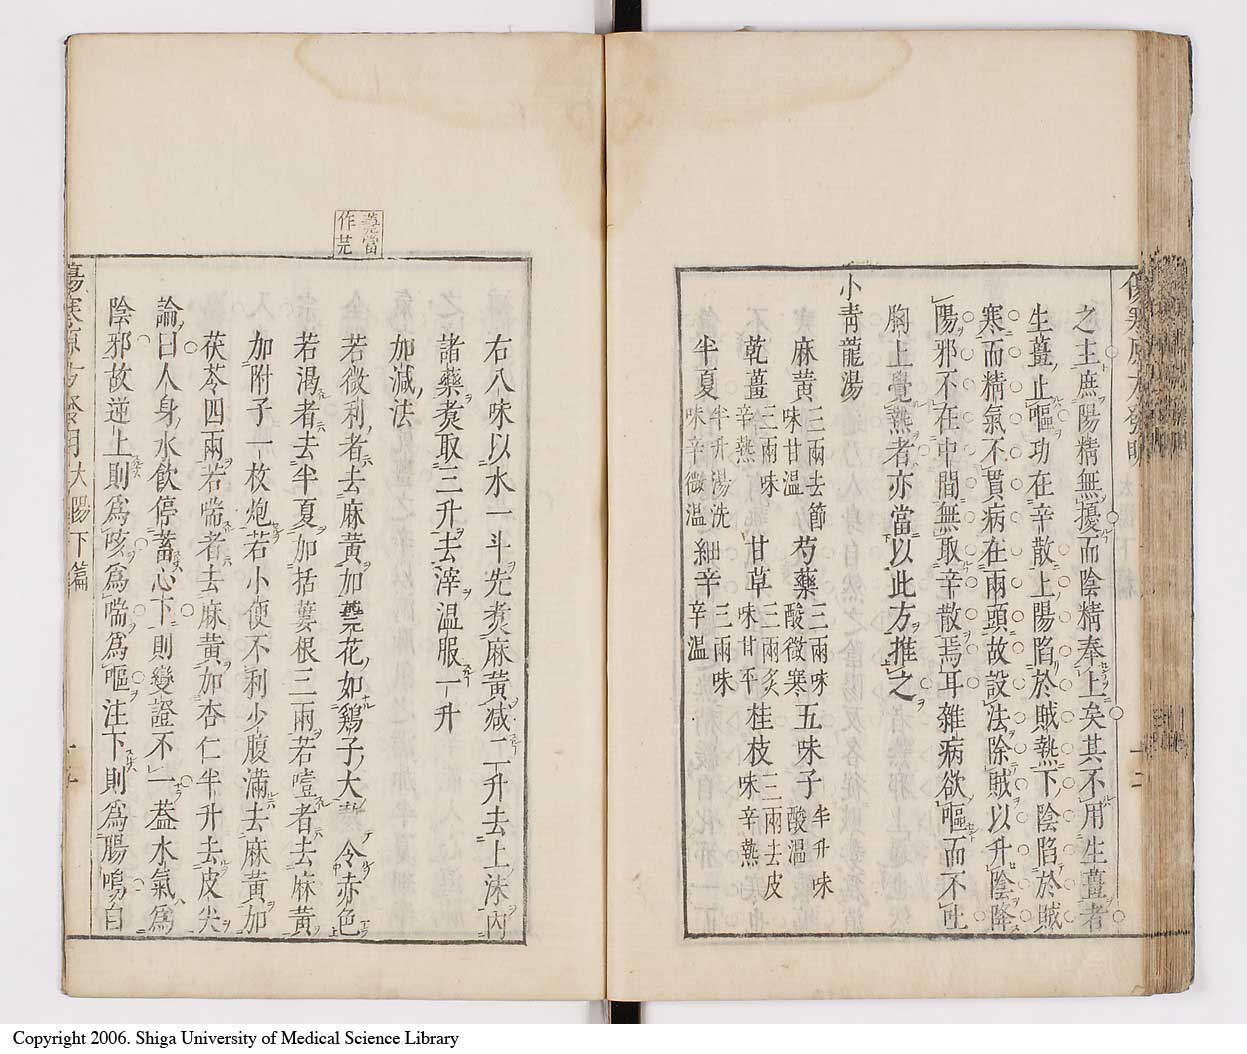 之主庶陽精無擾而陰精奉上矣其不用生薑者
生薑止嘔功在辛散上陽陷於賊熱下陰陷於賊
寒而精氣不貫病在兩頭故設法除賊以升陰降
陽邪不在中間無取辛散焉耳雜病欲嘔而不吐
胸上覺熱者亦當以此方推之
小青龍湯
麻黃三兩去節味甘溫 芍藥三兩味酸微寒 五味子半升味酸溫
乾薑三兩味辛熱 甘草三兩炙味甘平 桂枝三兩去皮味辛熱
半夏半升湯洗味辛微溫 細辛三兩味辛溫
蕘當作芫
右八味以水一斗先煑麻黃減二升去上沫內
諸藥煑取三升去滓溫服一升
加減法
若微利者去麻黃加蕘花如鷄子大熬令赤色
若渴者去半夏加括蔞根三兩若噎者去麻黃
加附子一枚炮若小便不利少腹滿去麻黃加
茯苓四兩若喘者去麻黃加杏仁半升去皮尖
論曰人身水飲停蓄心下則變證不一葢水氣爲
陰邪故逆上則爲咳爲喘爲嘔注下則爲腸鳴自
大陽下篇
Copyright 2006. Shiga University of Medical Science Library